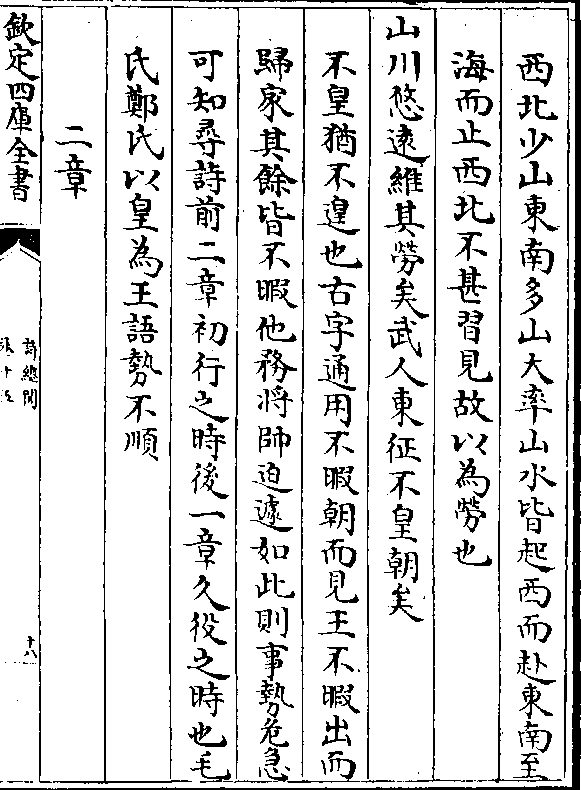 西北少山東南多山大率山水皆起西而赴東南至
海而止西北不甚習見故以為勞也
山川悠遠維其勞矣武人東征不皇朝矣
不皇猶不遑也古字通用不暇朝而見王不暇出而
歸家其餘皆不暇他務將帥迫遽如此則事勢危急
可知尋詩前二章初行之時後一章久役之時也毛
氏鄭氏以皇為王語勢不順
二章
欽定四庫全書
詩總聞
十八